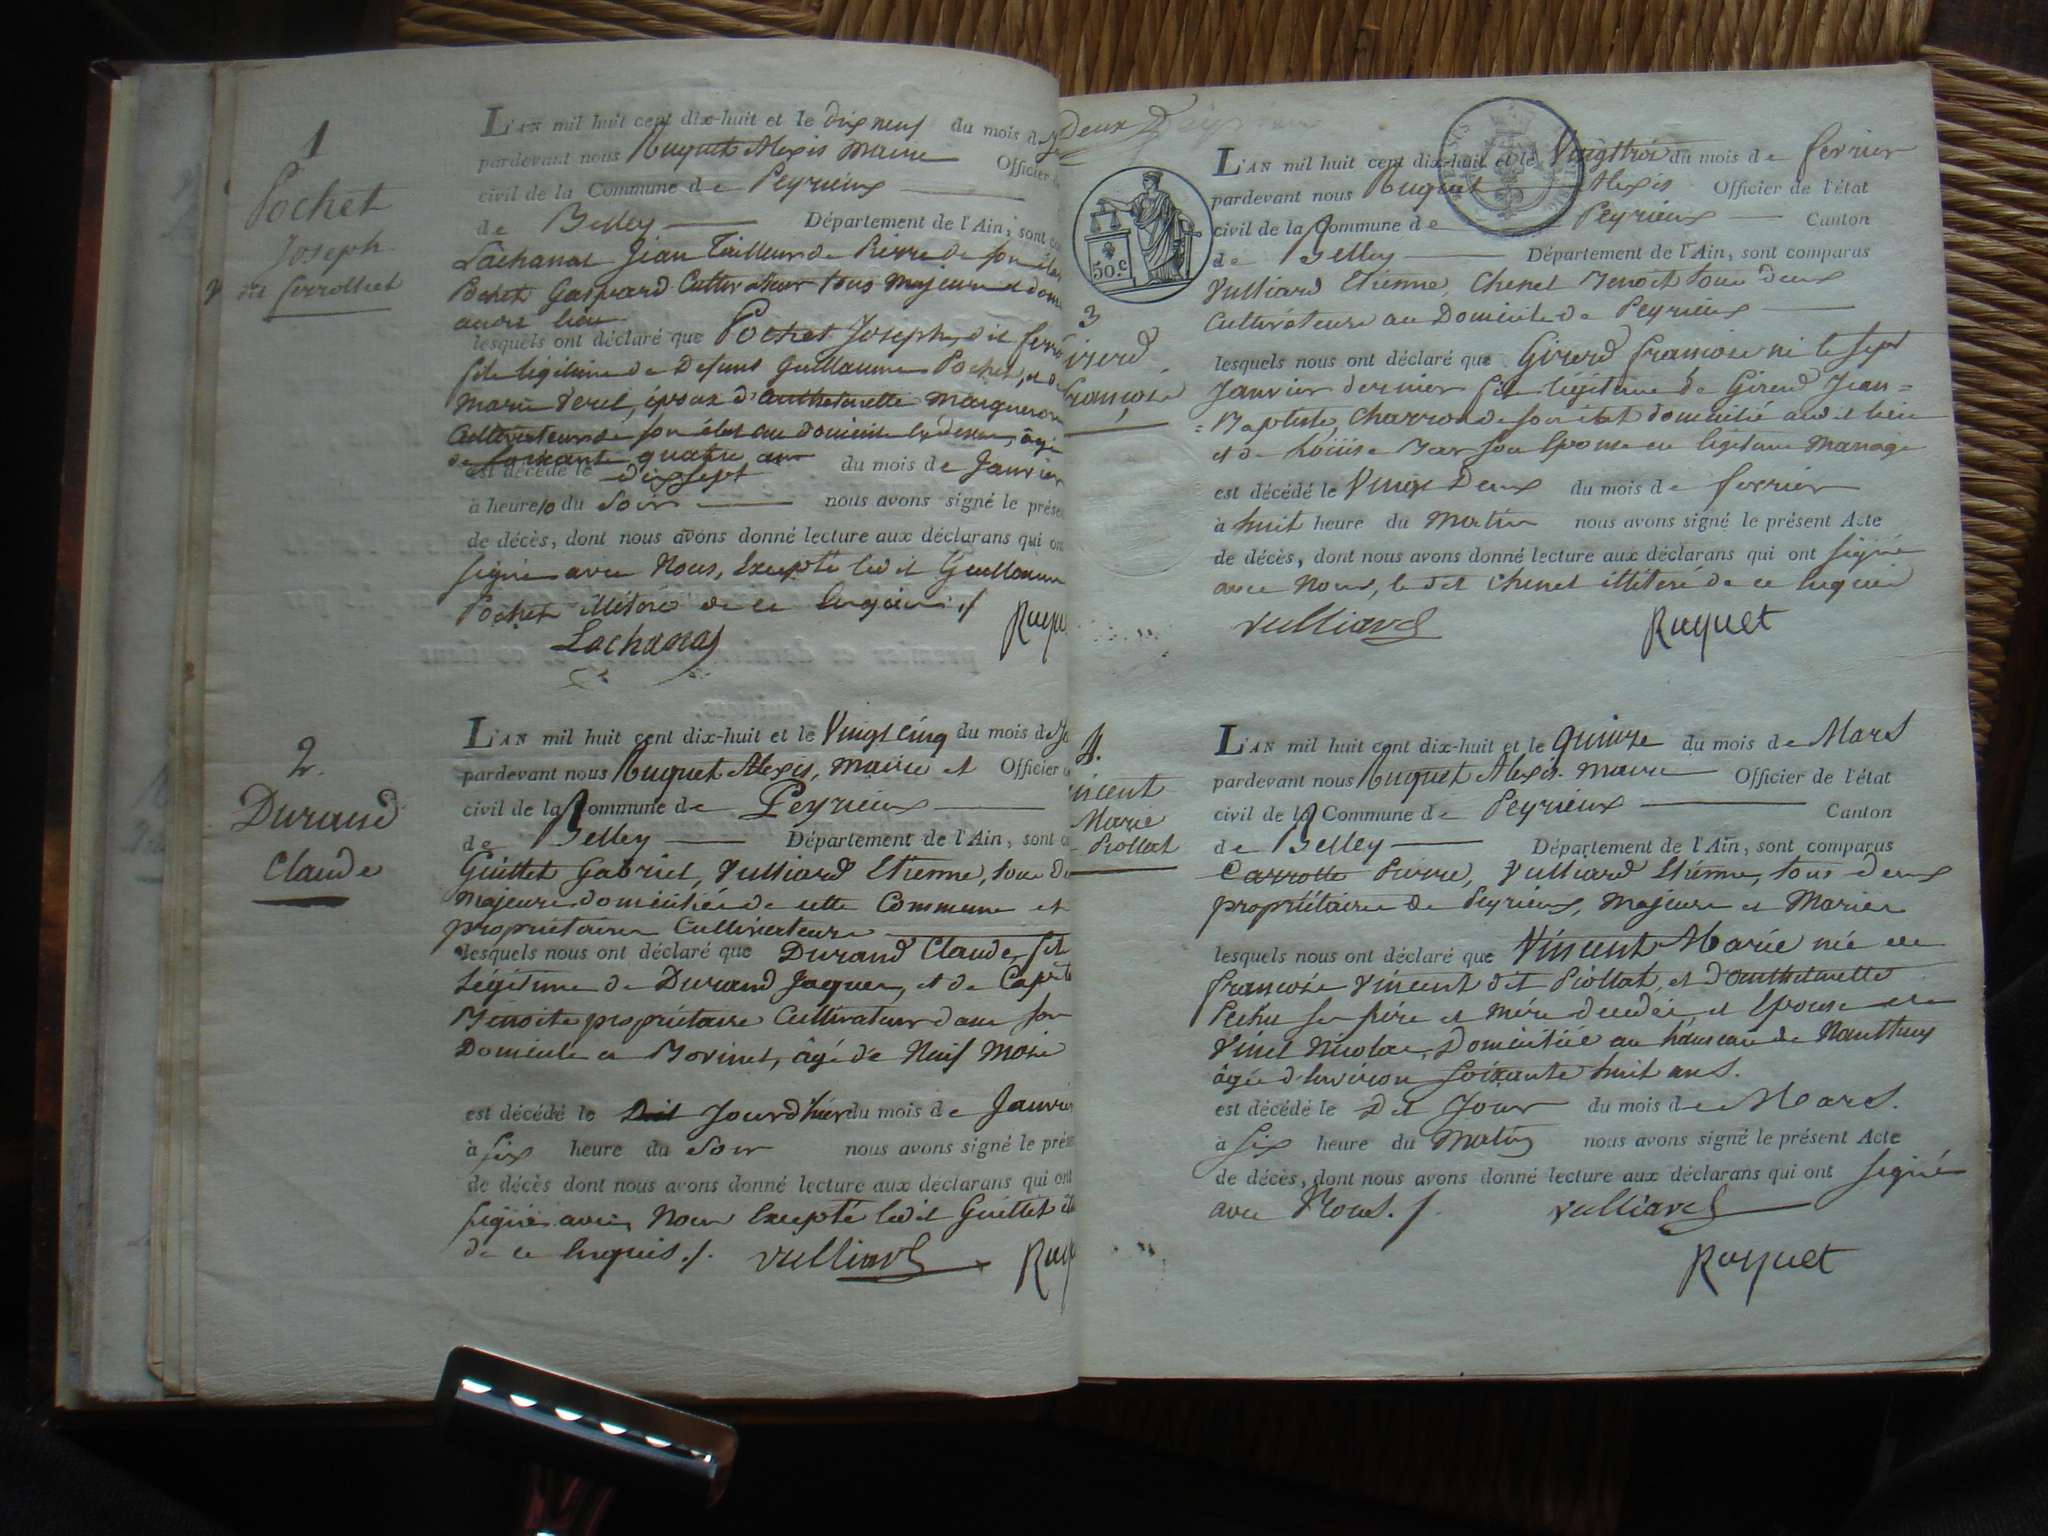 1
Pochet
Joseph
dit ferrolliet
L'AN mil huit cent dix-huit et le dix neuf du mois de
pardevant nous Ruquet Alexis maire Officier
civil de la Commune de Peyrieux
de Belley Département de l'Ain, sont
Lachanal Jean Tailleur de Pierre de son état
Pochet Gaspard Cultivateur tous majeurs et
audit lieu
lesquels nous ont déclaré que Pochet Joseph, dit
fils légitime de Defunt Guillaume Pochet, et de
Marie époux d'authoinette
Cultivateur de son état au domicile âgé
de soixante quatre ans
est décédé le dix sept du mois de Janvier
à heure 10 du Soir nous avons signé le
de décès, dont nous avons donné lecture aux déclarans qui ont
signé avec Nous, Excepté ledit Guillaume
Pochet illiteré de ce
Lachanal
2.
Durand
Claude
L'AN mil huit cent dix-huit et le Vingt cinq du mois de
pardevant nous Ruquet Alexis, maire et Officier
civil de la Commune de Peyrieux
de Belley Département de l'Ain, sont
Guillet Gabriel, Vulliard Etienne, tous
majeurs domiciliés de cette Commune et
propriétaires Cultivateurs
lesquels nous ont déclaré que Durand Claude, fils
Légitime de Durand Jaques, et de
Benoite propriétaire Cultivateur dans son
Domicile a âgé de Neuf Mois
est décédé le Jourd'hier du mois de Janvier
à six heure du Soir nous avons signé le
de décès dont nous avons donné lecture aux déclarans qui ont
signé avec Nous Excepté ledit Guillet
de ce Enquis ./. Vulliard
Deux
50.c
3
L'AN mil huit cent dix-huit et le Vingt trois du mois de fevrier
pardevant nous Ruquet Alexis Officier de l'état
civil de la Commune de Peyrieux Canton
de Belley Département de l'Ain, sont comparus
Vulliard Etienne, Chenet Benoit tous deux
Cultivateurs au Domicile de Peyrieux
lesquels nous ont déclaré que Girerd françois né le sept
Janvier dernier fils légitime de Girerd Jean=
=Baptiste, Charron de son état domicilié audit lieu
et de Louise son Epouse en légitime Mariage
est décédé le Vingt Deux du mois de fevrier
à huit heure du Matin nous avons signé le présent Acte
de décès, dont nous avons donné lecture aux déclarans qui ont signé
avec Nous, le dit Chenet illiteré de ce Enquis
Vulliard Ruquet
4.
Vincent
Marie
Piollat
L'AN mil huit cent dix-huit et le quinze du mois de Mars
pardevant nous Ruquet Alexis maire Officier de l'état
civil de la Commune de Peyrieux Canton
de Belley Département de l'Ain, sont comparus
Carrotte Pierre, Vulliard Etienne, tous deux
propriétaires de Peyrieux, majeurs et Mariés
lesquels nous ont déclaré que Vincent Marie née de
françois Vincent dit Piollat, et d'authoinette
Pechu ses père et mère décédés et Epouse de
Vinet Nicolas, Domiciliée au hameau de Nanthuy
âgée d'Environ Soixante huit ans.
est décédé le Dit Jour du mois de Mars.
à Six heure du Matin nous avons signé le présent Acte
de décès, dont nous avons donné lecture aux déclarans qui ont signé
avec Nous. /. Vulliard
Ruquet